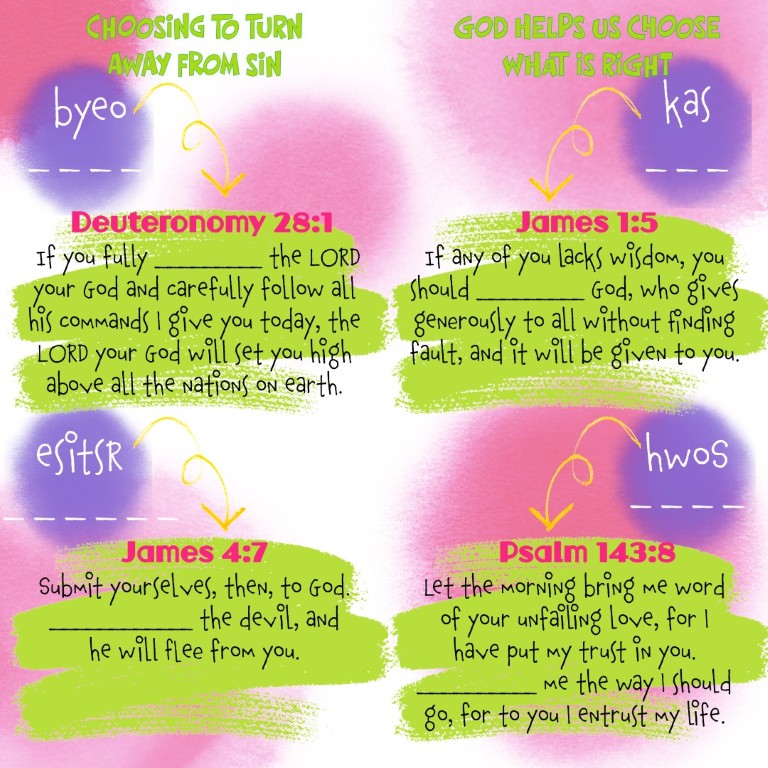 CHOOSING TO TURN
AWAY FROM SIN
byeo
_ _ _ _
Deuteronomy 28:1
If you fully __________ the LORD
your God and carefully follow all
his commands I give you today, the
LORD your God will set you high
above all the nations on earth.
GOD HELPS US CHOOSE
WHAT IS RIGHT
kas
_ _ _
James 1:5
If any of you lacks wisdom, you
should __________ God, who gives
generously to all without finding
fault, and it will be given to you.
esitsR
_ _ _ _ _ _
James 4:7
Submit yourselves, then, to God.
_____________ the devil, and
he will flee from you.
hwos
_ _ _ _
Psalm 143:8
Let the morning bring me word
of your unfailing love, for I
have put my trust in you.
___________ me the way I should
go, for to you I entrust my life.